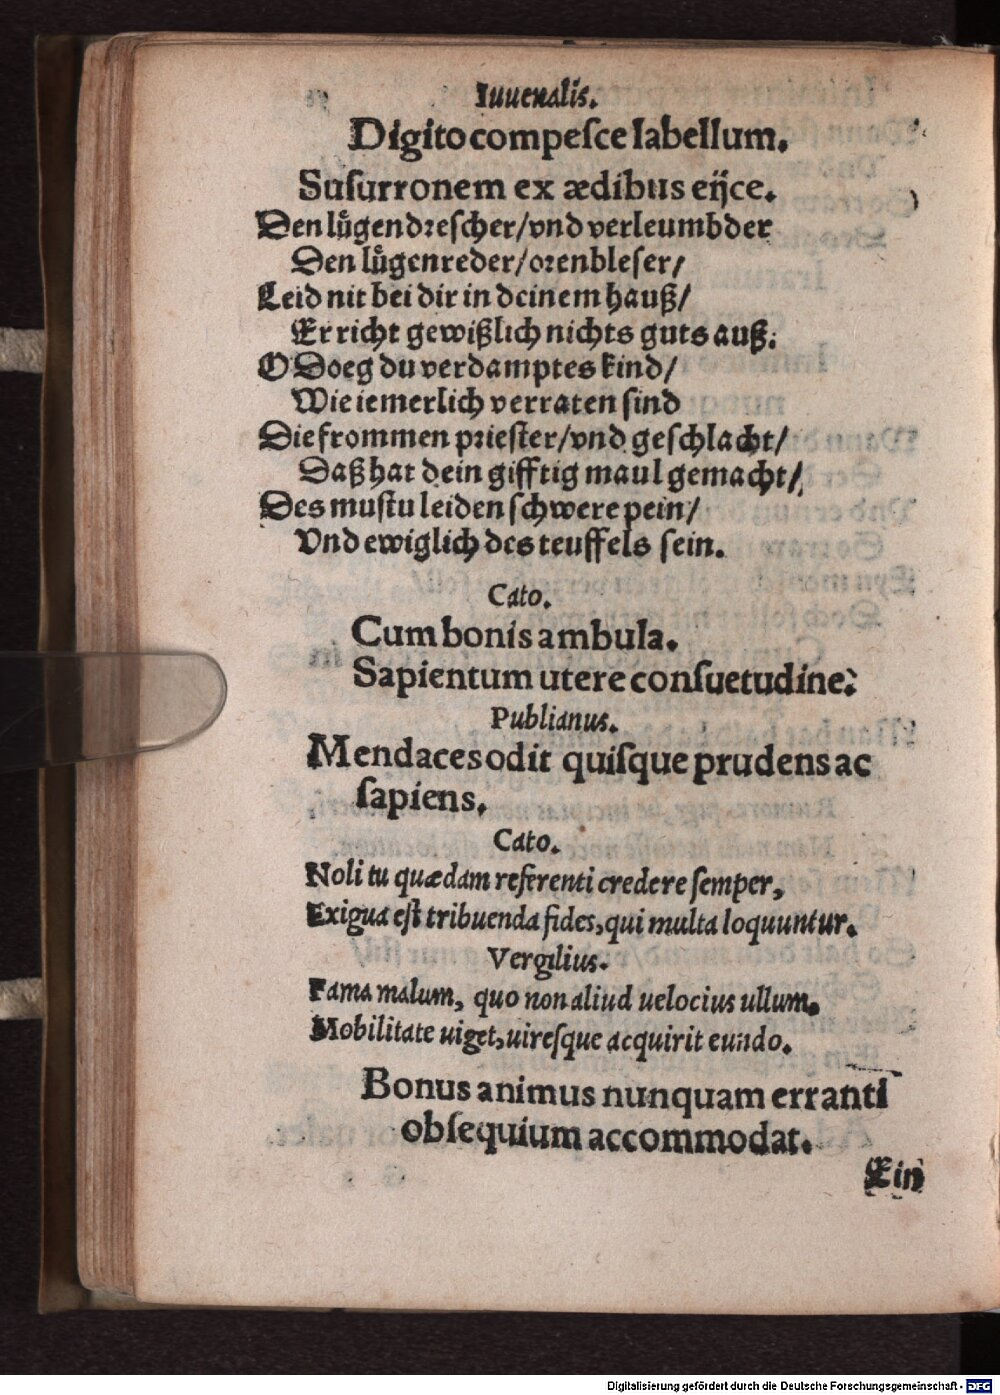 Iuuenalis.
Digito compeſce labellum.
Suſurronem ex ædibus eijce.
Den luͤgendreſcher/vnd verleumbder
Den luͤgenreder/orenbleſer/
Leid nit bei dir in deinem hauß/
Er richt gewißlich nichts guts auß.
O Doeg du verdamptes kind/
Wie iemerlich verraten ſind
Die frommen prieſter/vnd geſchlacht/
Daß hat dein gifftig maul gemacht/
Des muſtu leiden ſchwere pein/
Vnd ewiglich des teuffels ſein.
Cato.
Cum bonis ambula.
Sapientum utere conſuetudine.
Publianus.
Mendaces odit quiſque prudens ac
ſapiens.
Cato.
Noli tu quædam referenti credere ſemper,
Exigua eſt tribuenda fides, qui multa loquuntur.
Vergilius.
Fama malum, quo non aliud uelocius ullum.
Mobilitate uiget, uireſque acquirit eundo.
Bonus animus nunquam erranti
obſequium accommodat.
Ein
Digitalisierung gefördert durch die Deutsche Forschungsgemeinschaft - DFG